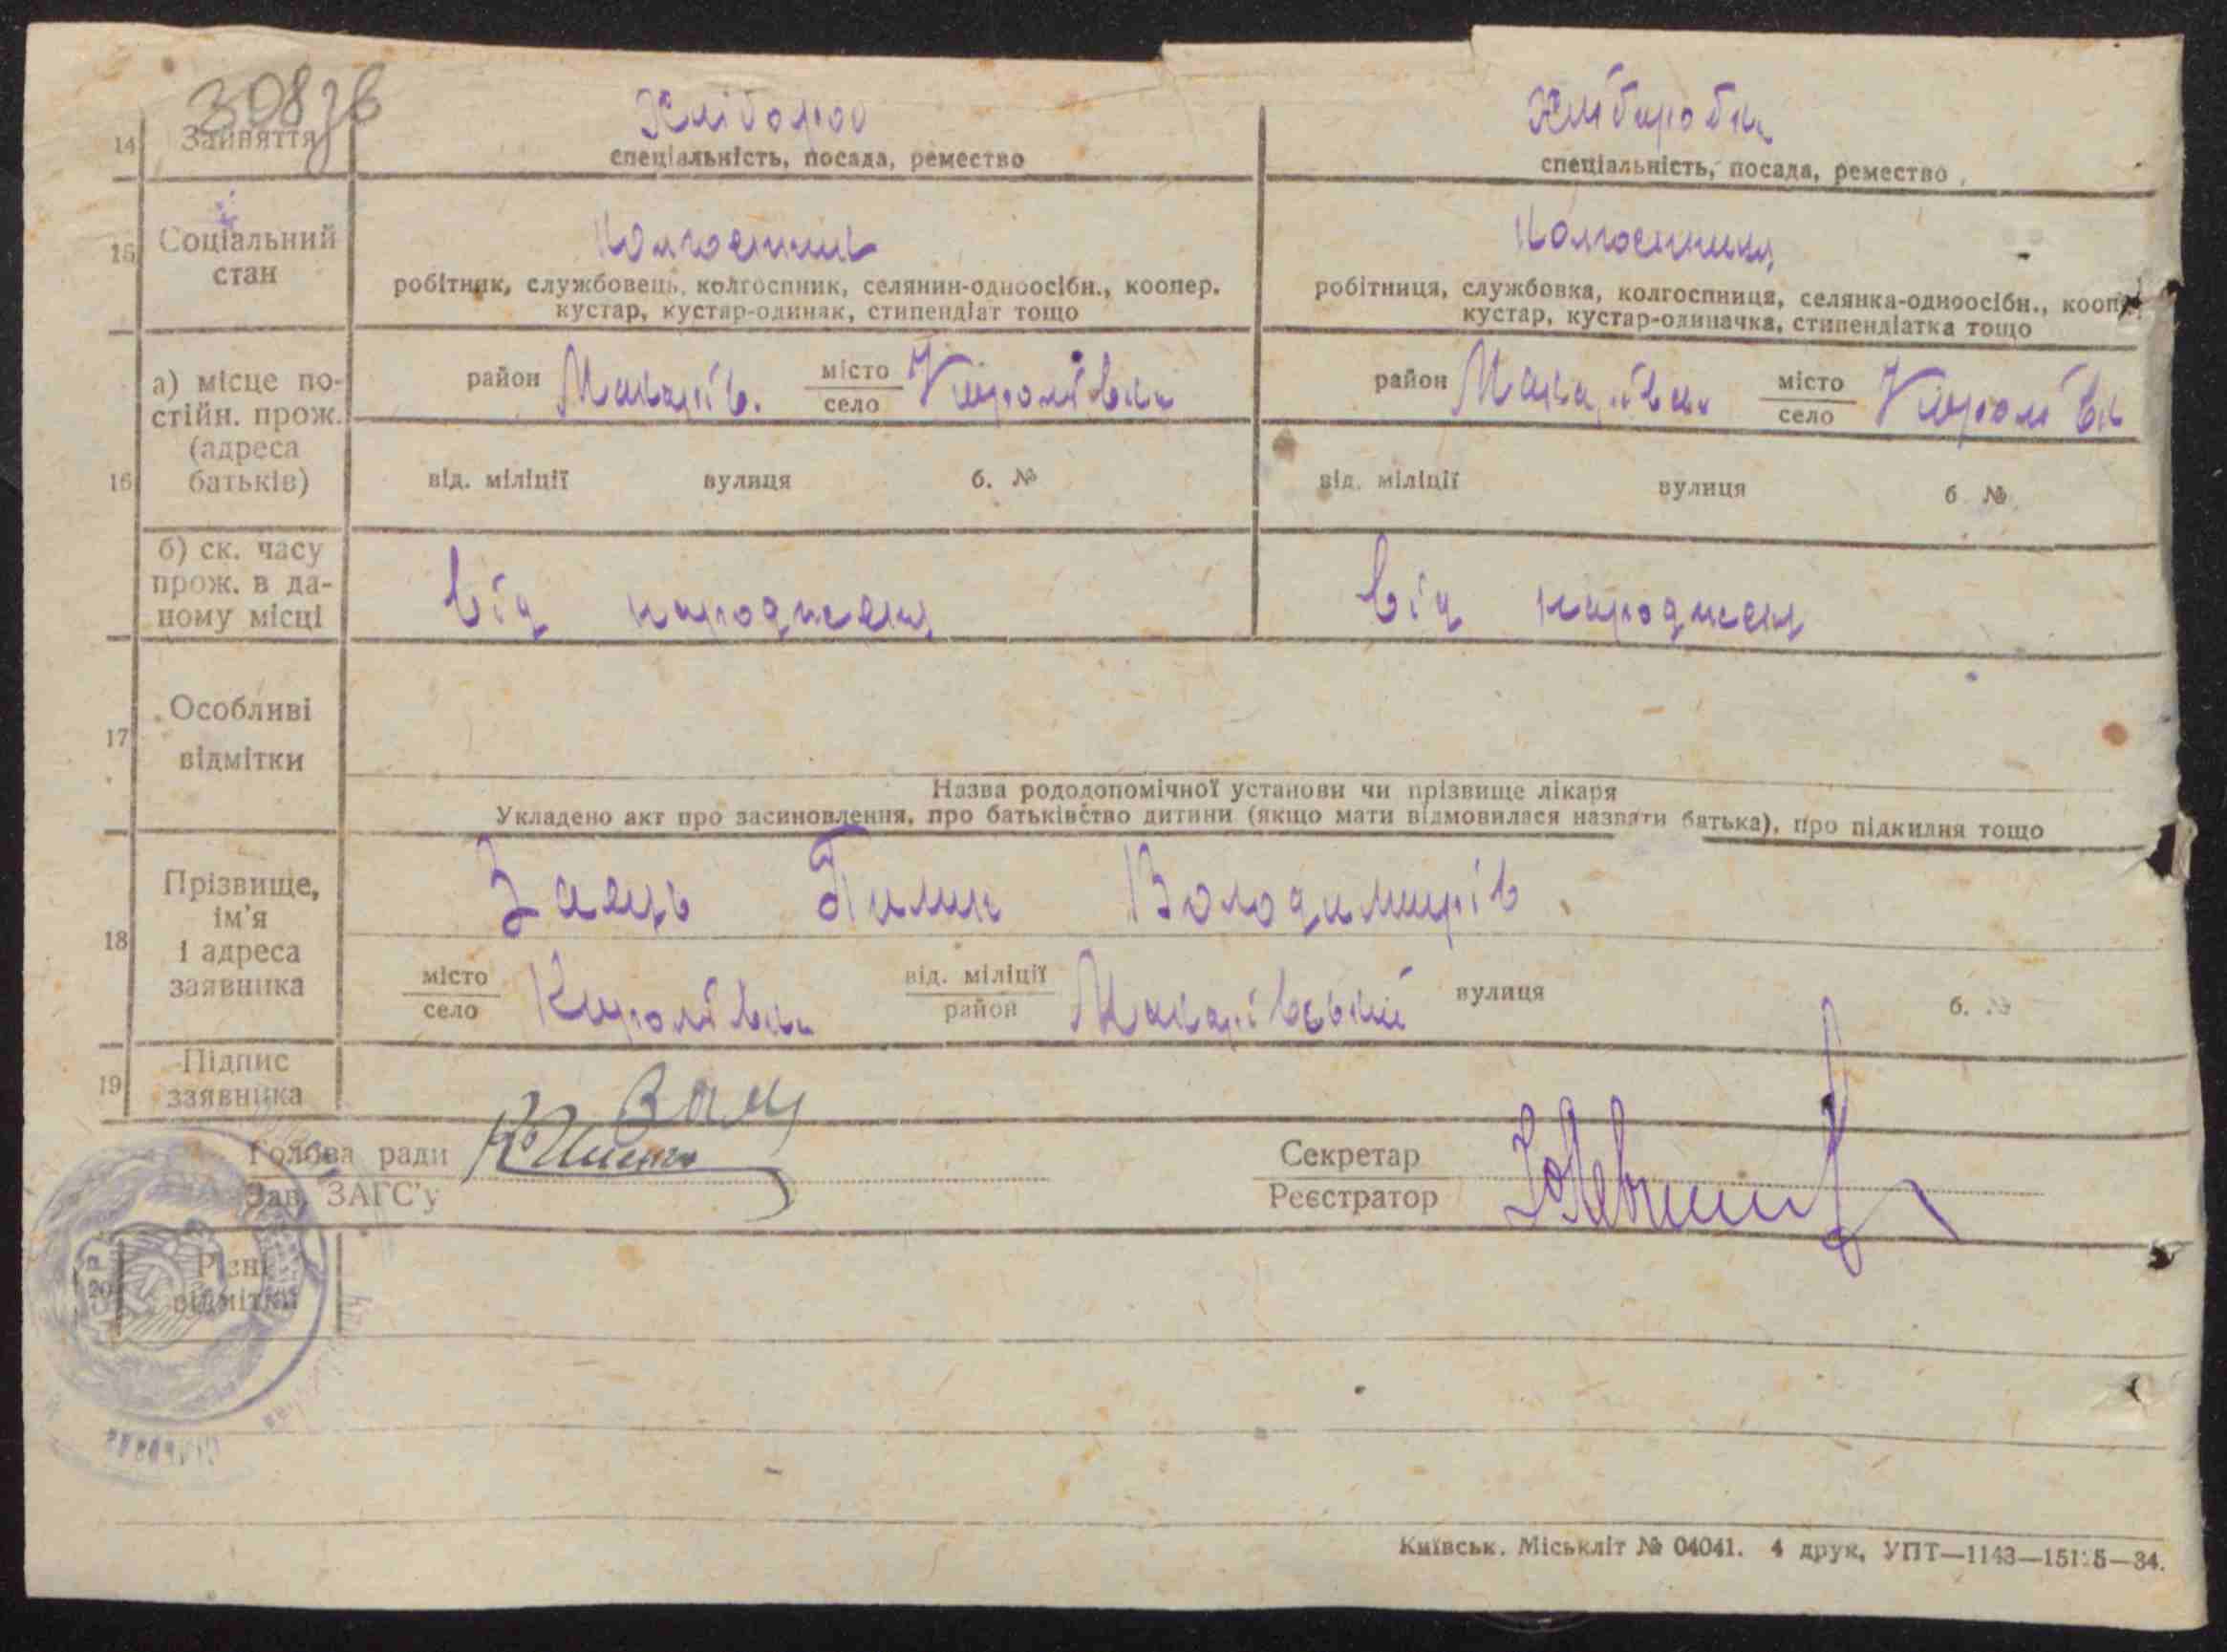 308зв
14 Заняття Хлібороб Хлібороби
спеціальність, посада, ремество спеціальність, посада, ремество
15 Соціальний стан Колгоспник Колгоспниця
робітник, службовець, колгоспник, селянин-одноосібн., коопер. робітниця, службовка, колгоспниця, селянка-одноосібн., кооп
кустар, кустар-одинак, стипендіат тощо кустар, кустар-одиначка, стипендіатка тощо
16 а) місце по-
стійн. прож.
(адреса
батьків)
район Макарів. місто село Королівка район Макарівськ місто село Королівк
від. міліції вулиця б. № від. міліції вулиця б №
б) ск. часу
прож. в да-
ному місці
від народженя від народженя
17 Особливі
відмітки
Назва рододопомічної установи чи прізвище лікаря
Укладено акт про засиновлення, про батьківство дитини (якщо мати відмовилася назвати батька), про підкидня тощо
18 Прізвище,
ім'я
і адреса
заявника
Заяць Пилип Володимирів.
місто село Королівка від. міліції район Макарівський вулиця б. №
19 Підпис
заявника
Заяц
Голова ради
Зав. ЗАГС'у
Секретар
Реєстратор
Різні
відмітки
Київськ. Міськліт № 04041. 4 друк, УПТ—1143—15125—34.